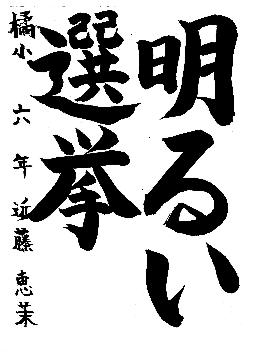 明るい
選挙
橘小 六年 近藤恵茉